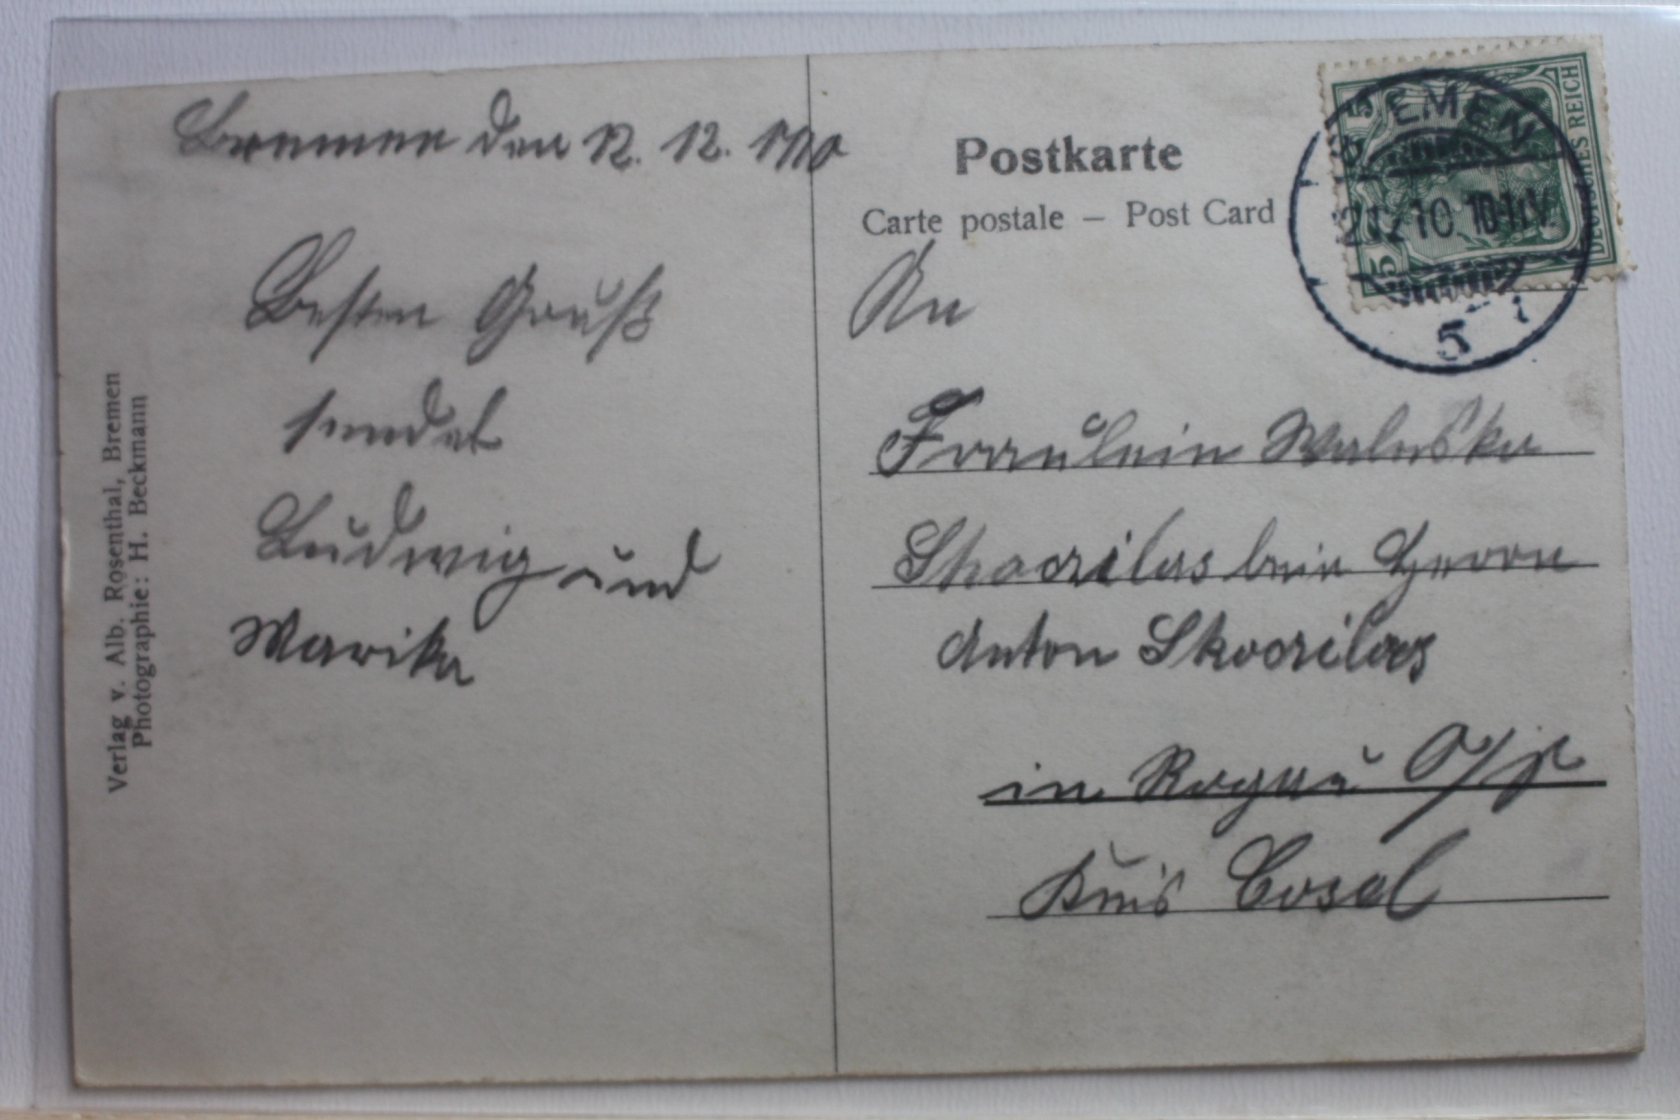 Bremen den 12. 12. 1910
Besten Gruß
sendet
Ludwig und
Marika
Verlag v. Alb. Rosenthal, Bremen
Photographie: H. Beckmann
Postkarte
Carte postale – Post Card
An
Fräulein Waleska
beim Herrn
Anton
in Rogau O/S
Kreis Cosel
DEUTSCHES REICH
5
5
BREMEN
12.12.10.10-11V.
5 i